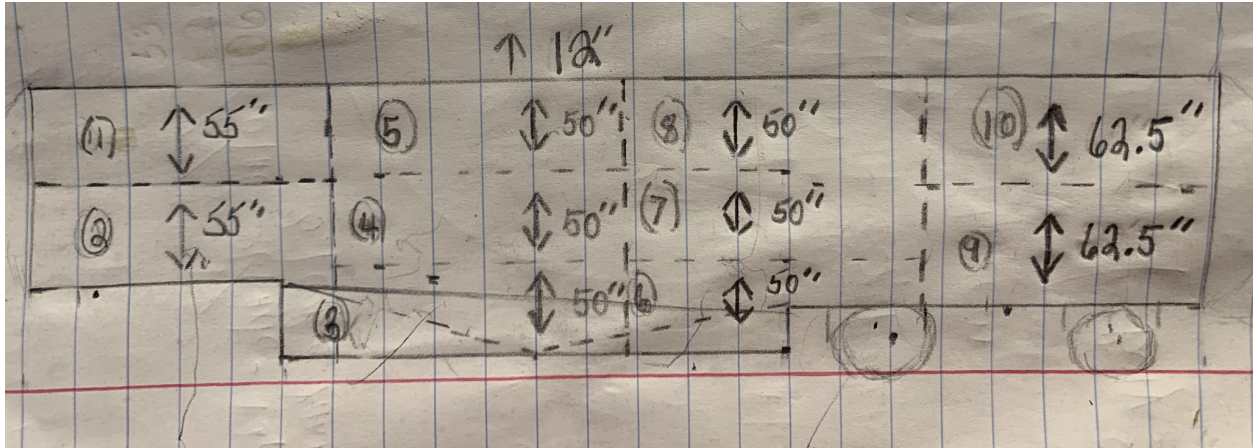 ↑ 12"
(1) ↕ 55" (5) ↕ 50" (8) ↕ 50" (10) ↕ 62.5"
(2) ↕ 55" (4) ↕ 50" (7) ↕ 50" (9) ↕ 62.5"
(3) ↕ 50" (6) ↕ 50"